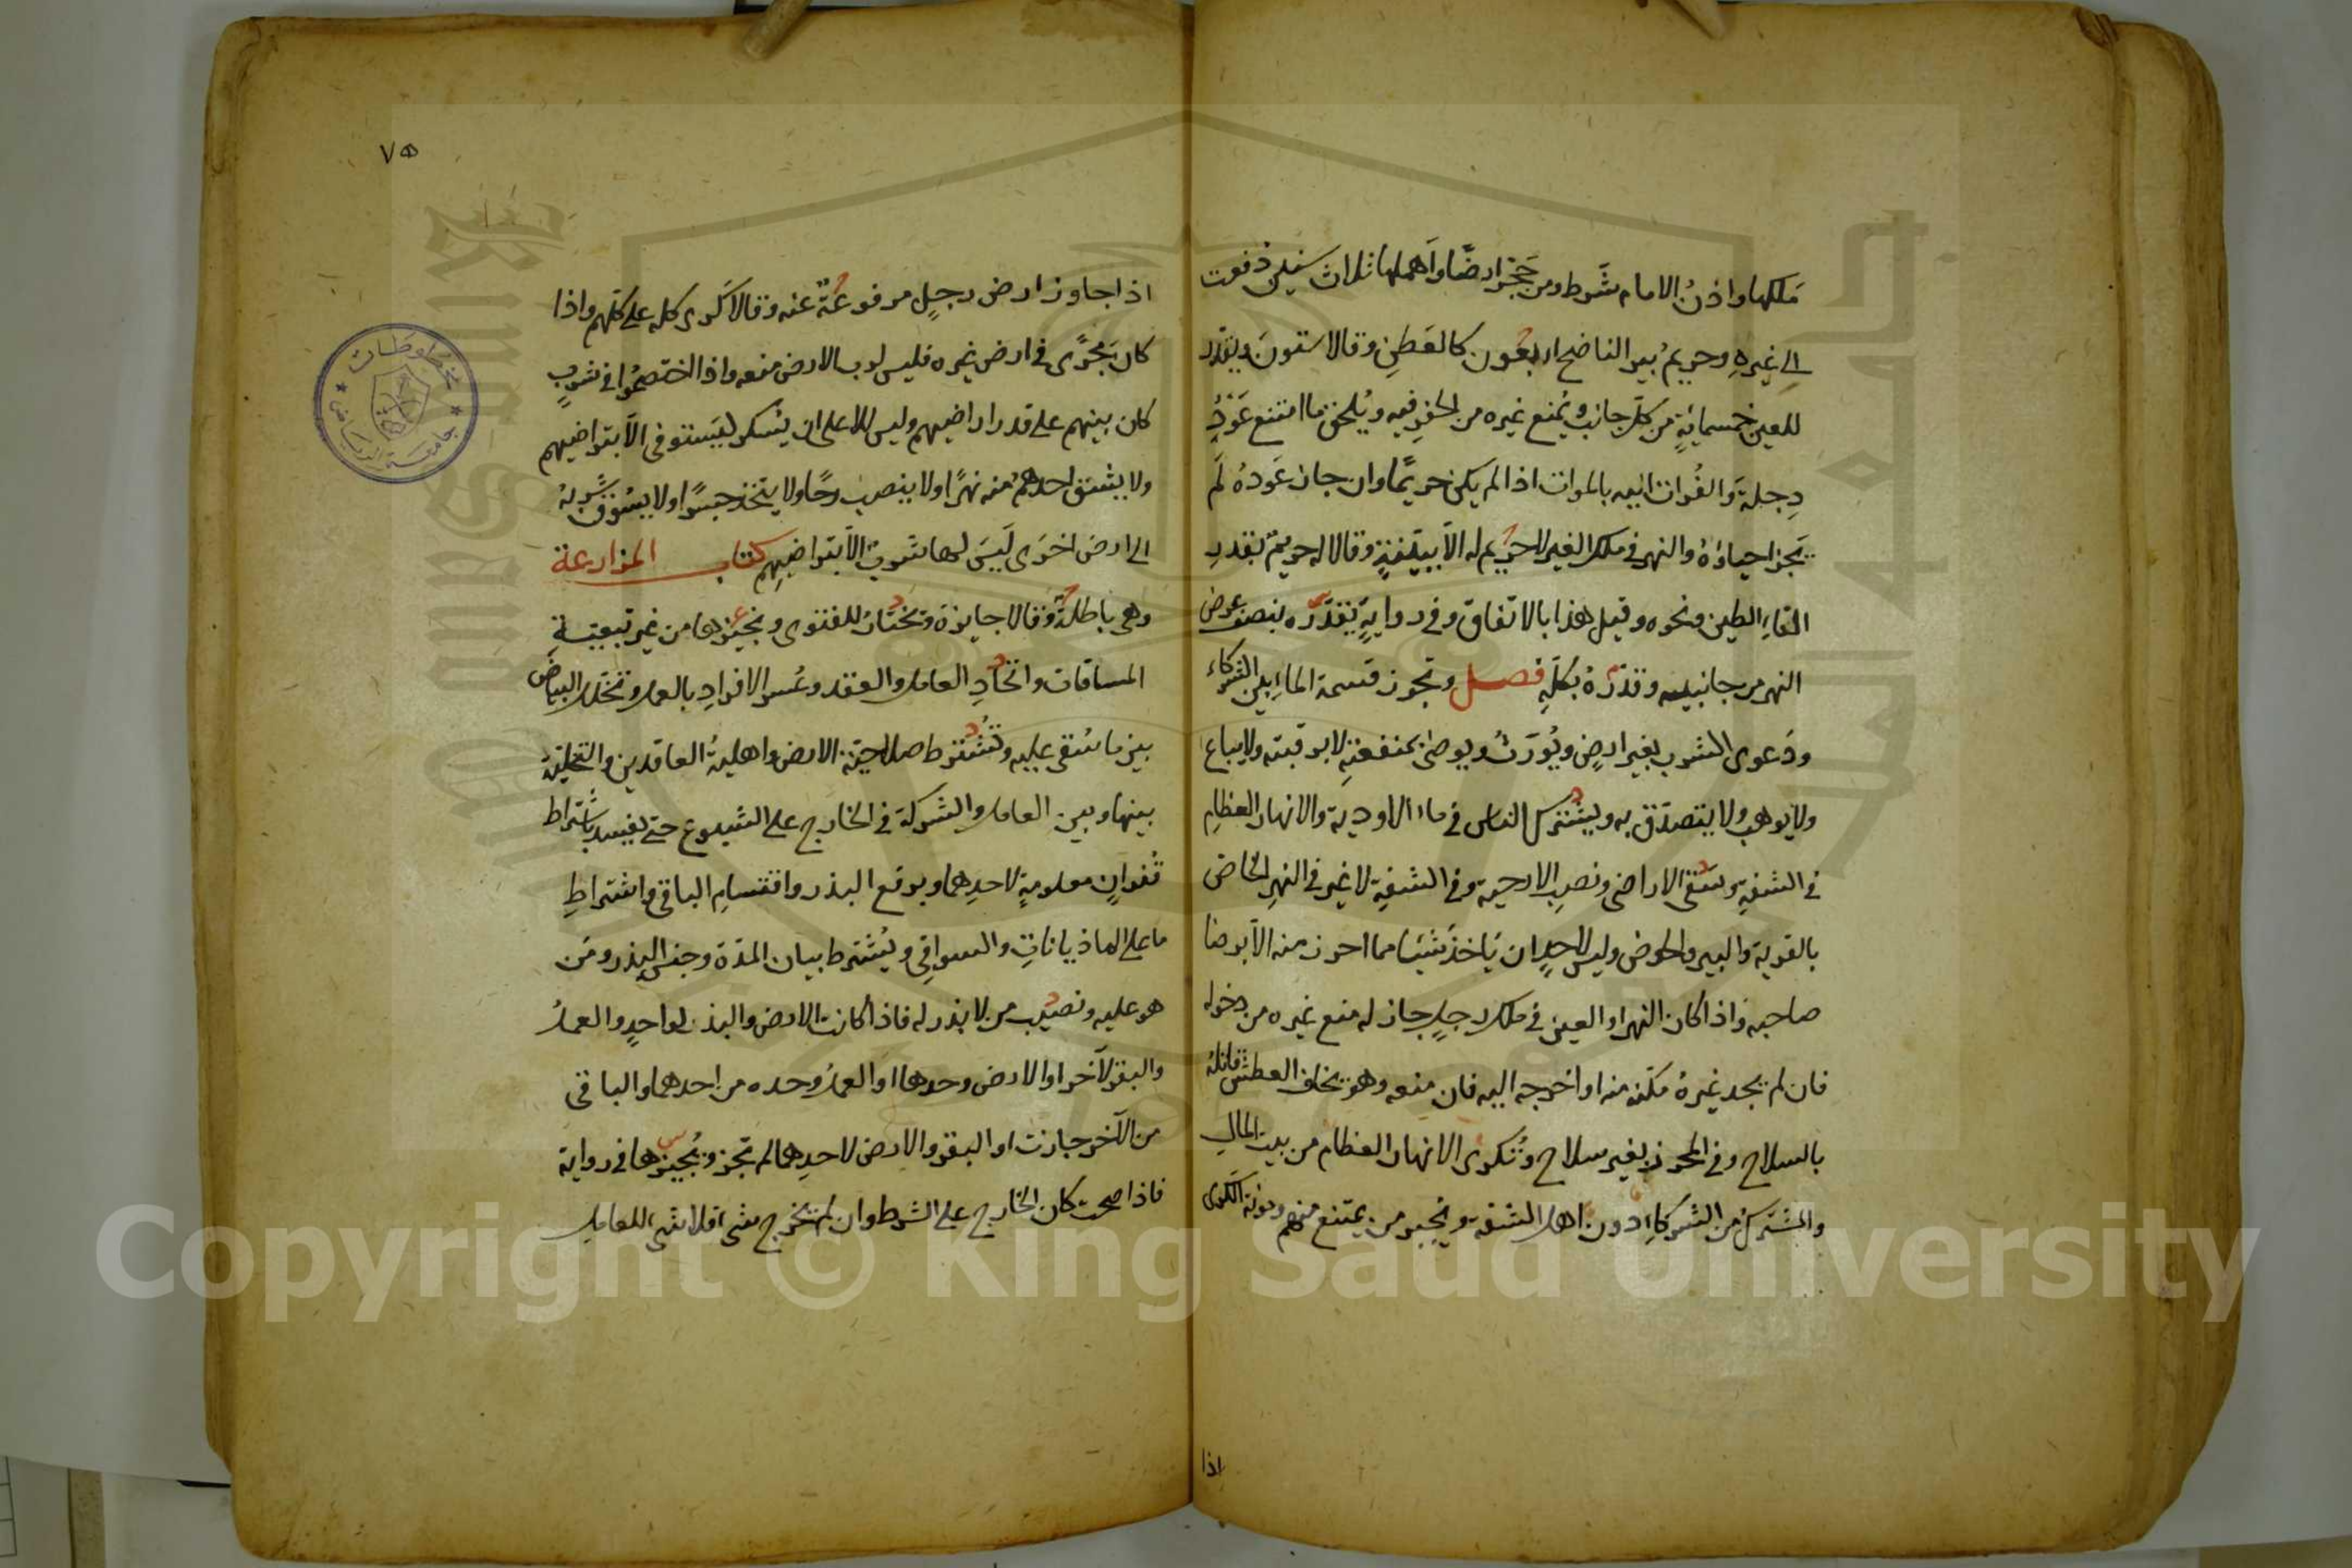 ملكها واذنُ الامام شَرط ومن حَجّر ارضًا واَهملها ثلاث سنين دُفعت
الى غيرهِ وحريمُ بير الناضح اربعُون كالعَطنِ وقالا ستونَ ويُقدّر
للعين خمسمائةٍ من كلّ جانب ويُمنع غيره من الحفرِ فيه ويُلحق ما امتنع عَوْدُ
دِجلةَ والفُرات اليه بالموات اذا لم يكن حريمًا وان جاز عَودهُ لَم
يَجز احياؤهُ والنهر في ملك الغير لا حريم له الاّ ببيّنةٍ وقالا له حريمٌ بقدرِ
القاءِ الطين ونحوه وقيل هذا بالاتفاق وفي روايةٍ يُقدّره بنصف عرض
النهر من جانبيه وقدّرهُ بكلّهِ فصل وتجوز قسمة الماءِ بين الشركاء
ودَعوى الشرب بغير ارضٍ ويُورَثُ ويوصىٰ بمنفعتهِ لا برقبته ولا يباع
ولا يوهب ولا يتصدّق به ويشترك الناس في ماء الاودية والانهار العظامِ
في الشفةِ وسَقى الاراضى ونصبِ الارحية وفي الشفةِ لا غير في النهرِ الخاص
بالقرية والبير والحوض وليس لاحدٍ ان يَاخذَ شيئا مما احرز منه الاّ برضا
صاحبه واذا كان النهر او العين في ملك رجلٍ جاز له منع غيره من دخوله
فان لم يجد غيرهُ مكّنه منه او اخرجه اليه فان منعه وهو يخاف العطش قاتلهُ
بالسلاح وفي المحرز بغير سلاح وتُكرى الانهار العظام من بيت المال
والمشترك من الشركاءِ دون اهل الشفة ويُجبر من يمتنع منهم ومؤنة الكرى
اذا
٧٥
اذا جاوز ارض رجلٍ مرفوعَةٌ عنه وقالا كرى كله على كلّهم واذا
كان مَجرًى في ارض غيره فليس لرب الارض منعه واذا اختصمُوا في شربٍ
كان بينهم على قدر اراضيهم وليس للاعلى ان يَسْكر ليَستوفى الاّ بتراضيهم
ولا يشقّ احدهُم منه نهرًا ولا ينصب رحًا ولا يتخذ جسرًا ولا يسُوق شربهُ
الى ارض اخرَى لَيسَ لها شربٌ الاّ بتراضيهِم كتاب المزارعة
وهى باطلةٌ وقالا جايزة وتختارُ للفتوى ونجيزها من غير تبعيّةِ
المساقات واتّحادِ العامل والعقد وعُسر الافرادِ بالعمل وتخلّل البياضِ
بين ما سُقى عليه وتُشترط صلاحيّة الارض واهليةُ العاقدين والتخلية
بينها وبين العامل والشركة في الخارج على الشيوع حتى يفسد باشتراط
قُفزانٍ معلومةٍ لاحدِهما وبرفع البذر واقتسامِ الباقى واشتراطِ
ما على الماذياناتِ والسواقِى ويُشترط بيان المدّة وجنس البذر ومَن
هو عليه ونصيب من لا بذر له فاذا كانت الارض والبذر لواحدٍ والعملُ
والبقر لآخر او الارض وحدها او العملُ وحده من احدهما والباقى
من الآخر جازت او البقر والارض لاحدِهما لم تجز ويُجيزها في رواية
فاذا صحت كان الخارج على الشرط وان لم يخرج شىء فلا شىء للعامل
مخطوطات
جامعة الرياض
Copyright © King Saud University